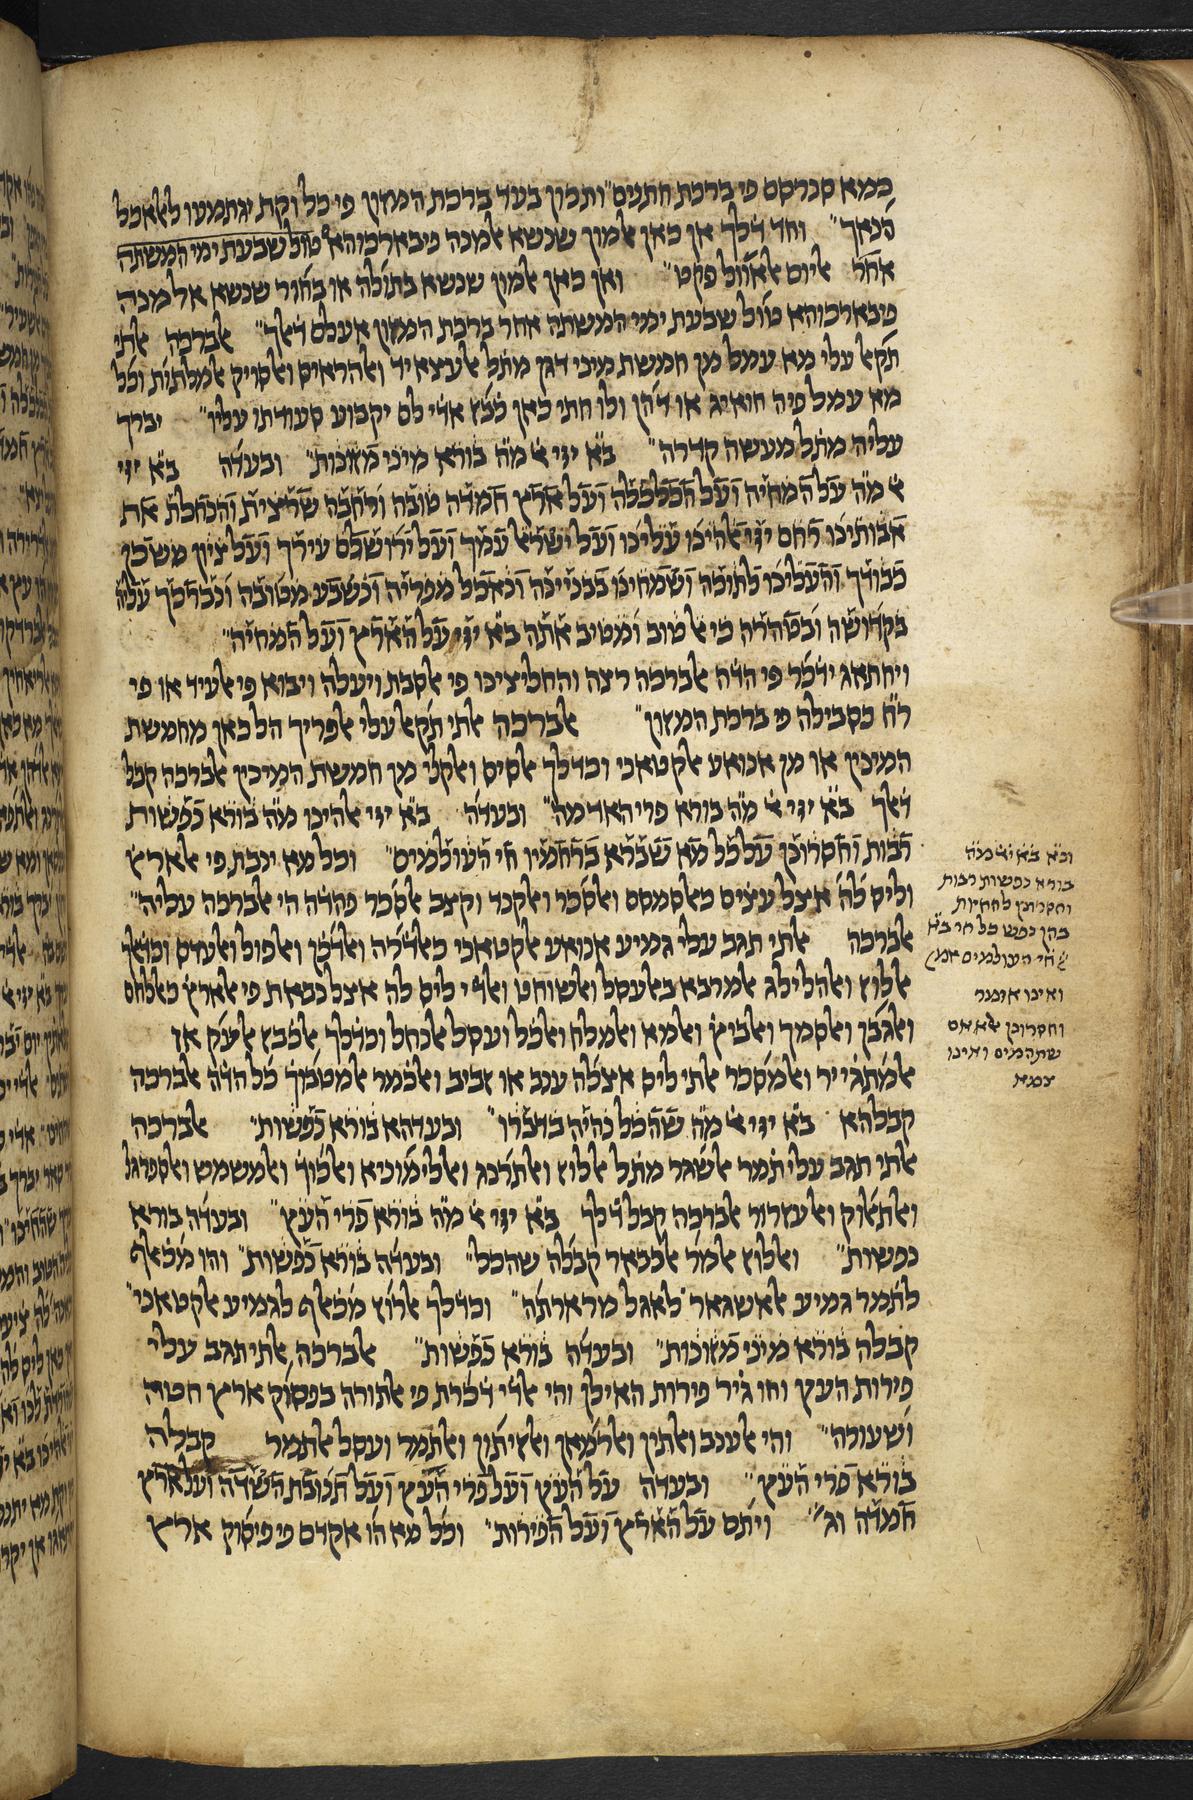 כמא סנרסם פי ברכת חתנים" ותכון בעד ברכת המזון פי כל וקת יגתמעו ללאכל
הנאך" וחד דלך אן כאן למון שנשא למנה פיבארכוהא טול שבעת ימי המשתה
אחר ליום לאוול פקט" ואן כאן למון שנשא בתולה או בחור שנשא אלמנה
פיבארכוהא טול שבעת ימי המשתה אחר ברכת המזון אעלם דאך" לברכה לתי
תקאל עלי מא עמל מן חמשת מיני דגן מתל לעצאיד ולהראיס ולסויק למלתות וכל
מא עמל פיה חואיג או דהן ולו חתי כאן כבץ לדי לם יקבוע סעודתו עליו" יברך
עליה מתל מעשה קדרה" בא ייי א מה בורא מיני מזונות" ובעדה בא ייי
א מה על המחיה ועל הכלכלה ועל ארץ חמדה טובה ורחבה שרצית והנחלת את
אבותינו רחם ייי אלהינו עלינו ועל ישראל עמך ועל ירושלם עירך ועל ציון משכן
כבודך והעלינו לתוכה ושמחינו בבניינה ונאכל מפריה ונשבע מטובה ונברכך עליה
בקדושה ובטהרה כי אל טוב ומטיב אתה בא ייי על הארץ ועל המחיה"
ויחתאג ידכר פי הדה לברכה רצה והחליצינו פי לסבת ויעלה ויבוא פי לעיד או פי
רח כסבילה פי ברכת המזון" לברכה לתי תקאל עלי לפריך הל כאן מחמשת
המינין או מן אנואע לקטאני וכדלך לסיס ולקלי מן חמשת המינין לברכה קבל
דאך בא ייי א מה בורא פרי האדמה" ובעדה בא ייי אלהינו מה בורא נפשות
רבות וחסרונן על כל מא שברא ברחמיו חי העולמים" וכל מא ינבת פי לארץ
וליס לה אצל עצים כאלסמסם ולסכר ולקנד וקצב לסכר פהדה הי לברכה עליה"
לברכה לתי תגב עלי גמיע אנואע לקטאני כאלדרה ולדכן ולפול ולעדס וכדאך
ללוז ולהלילג למרבא באלעסל ולשוחט ולדי ליס לה אצל נבאת פי לארץ כאללחם
ולגבן ולסמך ולביץ ולמא ולמלח ולכל ועסל לנחל וכדלך לכבץ לעק אן
למתגייר ולמסכר לתי ליס אצלה ענב או זביב ולכמר למטבוך כל הדה לברכה
קבלהא בא ייי א מה שהכל נהיה בדברו" ובעדהא בורא נפשות" לברכה
לתי תגב עלי תמר לשגר מתל ללוז ולתרנג וללימוניא ולכוך ולמשמש ולספרגל
ולתלוק ולעזרור לברכה קבל דלך בא ייי א מה בורא פרי העץ" ובעדה בורא
נפשות" וללוז למר לכבאר קבלה שהכל" ובעדה בורא נפשות" והו מכאלף
לתמר גמיע לאשגאר לאגל מרארתה" וכדלך לרוז מכאלף לגמיע לקטאני"
קבלה בורא מיני מזונות" ובעדה בורא נפשות" לברכה לתי תגב עלי
פירות העץ וחו גיר פירות האילן והי לדי דכרת פי לתורה בפסוק ארץ חטה
ושעורה" והי לענב ולתין ולרמאן ולזיתון ולתמר ועסל לתמר קבלה
בורא פרי העץ" ובעדה על העץ ועל פרי העץ ועל תנובת השדה ועל ארץ
חמדה וג'" ויתם על הארץ ועל הפירות" וכל מא הו אקדם פי פיסוק ארץ
ונא בא ייי א מה
בורא נפשות רבות
וחסרונן להחיות
בהן נפש כל חי בא
א חי העולמים אמן
ואינו אומר
וחסרונן אלא אם
שתה מים ואינו
צמא